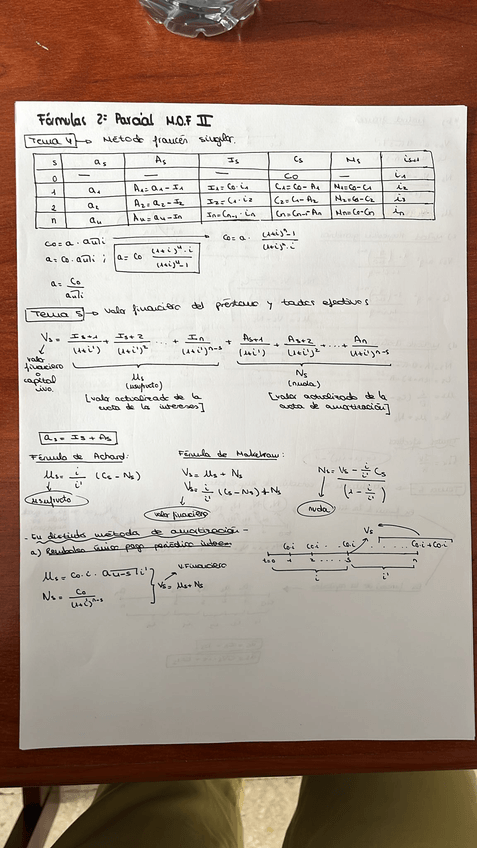 Fórmulas 2º Parcial M.O.F II
Tema 4 → Método francés singular.
s | as | As | Is | Cs | Ms | is+1
0 | — | — | — | C0 | — | i1
1 | a1 | A1=a1-I1 | I1=C0·i1 | C1=C0-A1 | M1=C0-C1 | i2
2 | a2 | A2=a2-I2 | I2=C1·i2 | C2=C1-A2 | M2=C0-C2 | i3
n | an | An=an-In | In=Cn-1·in | Cn=Cn-1-An | Mn=C0-Cn | in
C0=a·an┐i → C0=a· (1+i)^n-1 / (1+i)^n·i
a=C0·an┐i ; a=C0 (1+i)^n·i / (1+i)^n-1
a= C0 / an┐i
Tema 5 → valor financiero del préstamo y tantos efectivos
Vs= Is+1/(1+i') + Is+2/(1+i')^2 ... + In/(1+i')^n-s + As+1/(1+i') + As+2/(1+i')^2 + ... + An/(1+i')^n-s
valor
financiero
o
capital
vivo.
Us
(usufructo)
[valor actualizado de la
cuota de la intereses]
Ns
(nuda)
[valor actualizado de la
cuota de amortización]
as = Is + As
Fórmula de Achard:
Us= i/i' (Cs-Ns)
usufructo
Fórmula de Makeham:
Vs = Us + Ns
Vs= i/i' (Cs-Ns)+Ns
valor financiero
Ns= Vs - i/i' Cs / (1 - i/i')
nuda
- En distintos métodos de amortización -
a) Reembolso único pago periódico interes
Us = C0·i · an-s┐i'
Ns = C0 / (1+i')^n-s
Vs= Us+Ns
V.Financiero
Vs
C0·i C0·i ... C0·i C0·i+C0
t=0 1 2 ... s n
i i'